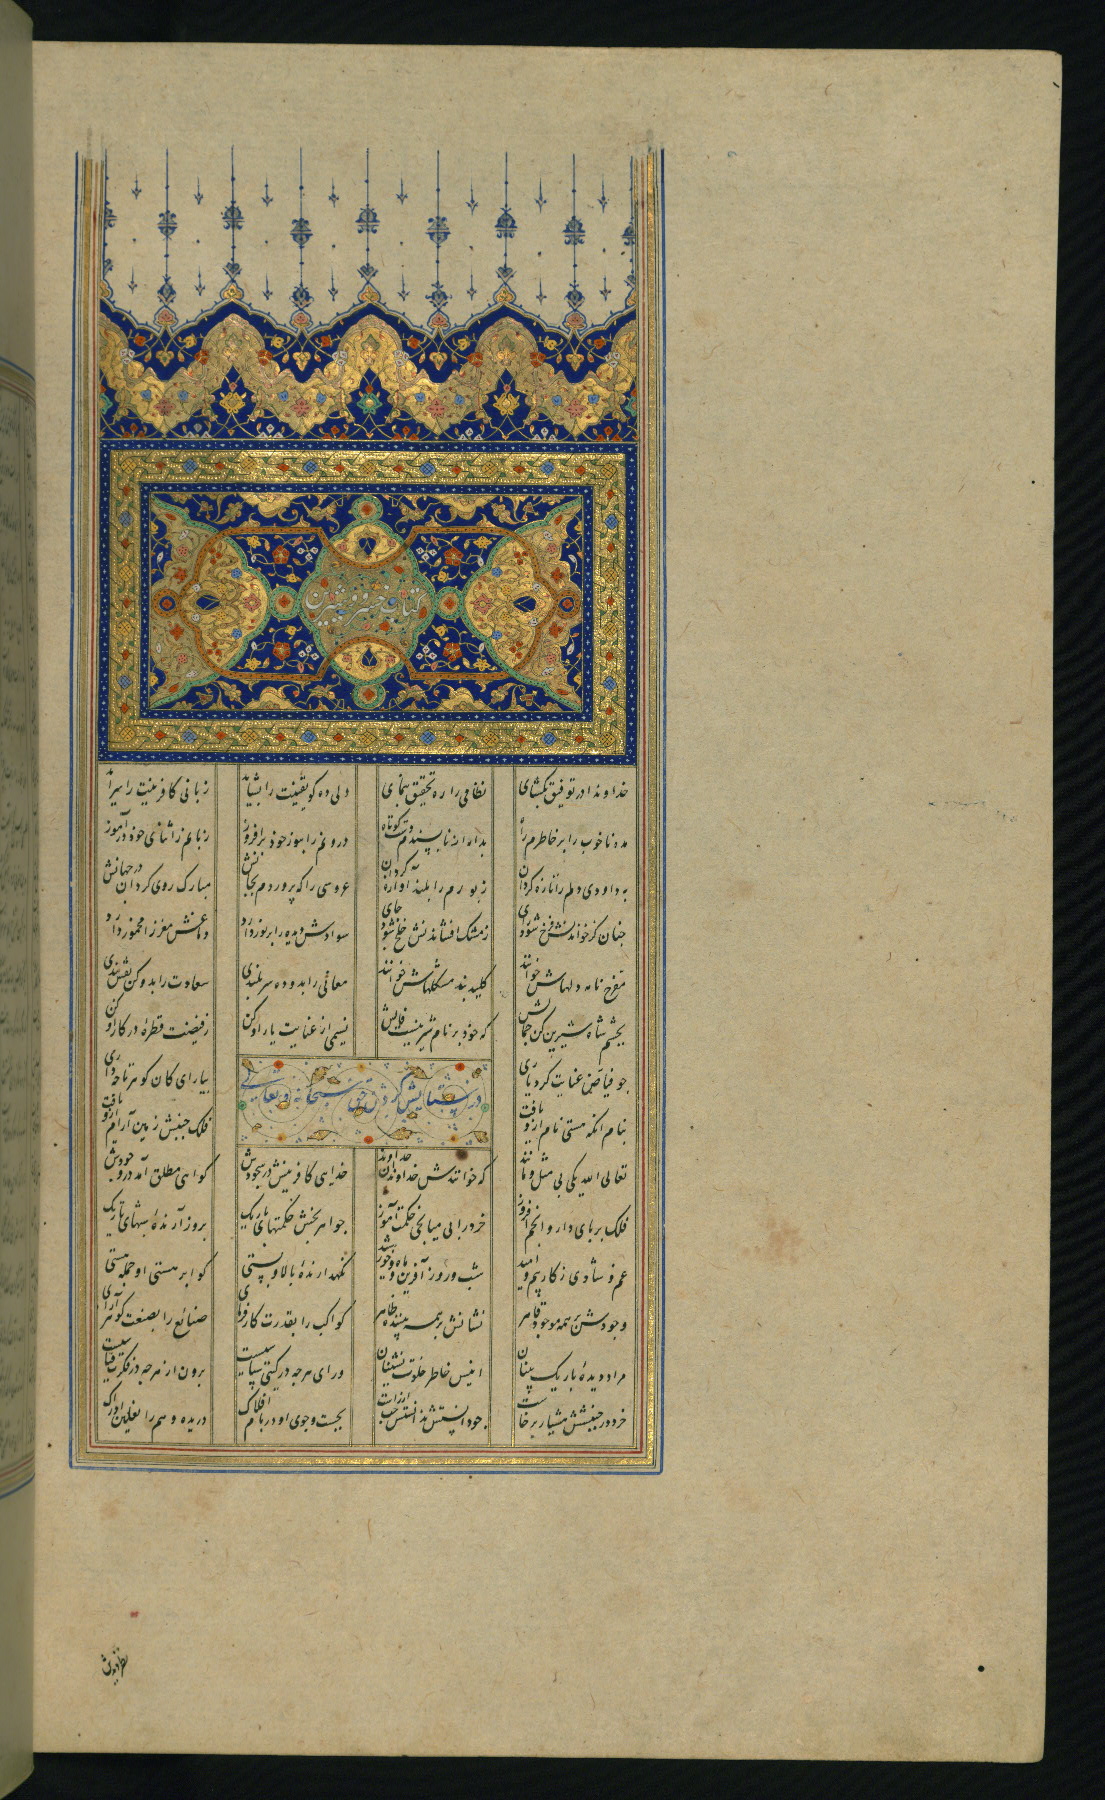 کتاب خسرو و شیرین
خداوندا در توفیق بگشای نظامی را ره تحقیق بنمای دلی ده کو یقینت را بشاید زبانی کافرینت را سراید
مده ناخوب را بر خاطرم راه بدار از ناپسندم دست کوتاه درونم را بنور خود برافروز زبانم را ثنای خود درآموز
بداودی دلم را تازه گردان زبورم را بلند آوازه گردان عروسی را که پروردم بجانش مبارک روی گردان در جهانش
چنان کز خواندنش فرخ شود رای ز مشک افشاندنش خلخ شود جای سوادش دیده را پرنور دارد دماغش مغز را مخمور دارد
مفرح نامه دلهاش خوانند کلید بند مشکلهاش خوانند معانی را بدو ده سربلندی سعادت را بدو کن نقش بندی
بچشم شاه شیرین کن جمالش که خود بر نام شیرینست فالش نسیمی از عنایت یار او کن ز فیضت قطرهٔ در کار او کن
چو فیاض عنایت کرد یاری بیارای کان گوهر تا چه داری
در ستایش کردن حق سبحانه و تعالی
بنام آنکه هستی نام ازو یافت فلک جنبش زمین آرام ازو یافت
تعالی الله یکی بی مثل و مانند که خوانندش خداوندان خداوند خدایی کافرینش در سجودش گواهی مطلق آمد در وجودش
فلک بر پای دار و انجم افروز خرد را بی میانجی حکمت آموز جواهر بخش حکمتهای باریک بروز آرندهٔ شبهای تاریک
غم و شادی نگار و بیم و امید شب و روز آفرین و ماه و خورشید نگهدارندهٔ بالا و پستی گوا بر هستی او جمله هستی
وجودش بر همه موجود قاهر نشانش بر همه بیننده ظاهر کواکب را بقدرت کارفرمای صنایع را بصنعت گوهر آرای
مراد دیدهٔ باریک بینان انیس خاطر خلوت نشینان ورای هرچه در گیتی اساسیست برون از هرچه در فکرت قیاسیست
خرد در جنبشش هشیار برخاست چو دانستش ندانستش چپ از راست بجست و جوی او در بام افلاک دریده وهم را نعلین ادراک